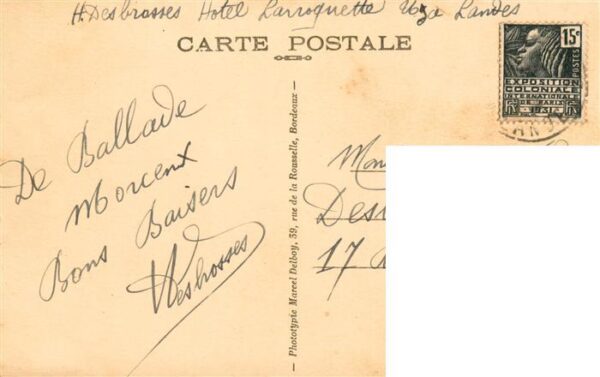 H. Desbrosses Hotel Larroquette Uza Landes
CARTE POSTALE
15c
POSTES
EXPOSITION
COLONIALE
INTERNATIONALE
DE PARIS
1931
De Ballade
Morcenx
Bons Baisers
HDesbrosses
Phototypie Marcel Delboy, 39, rue de la Rousselle, Bordeaux
17